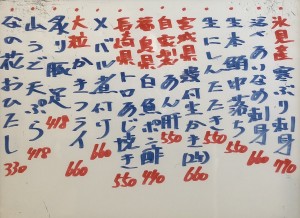 氷見産 寒ぶり刺身 770
活〆あいなめ刺身 660
生本鮪中落ち 550
生にしんたたき 550
宮城県 殻付生かき(2ヶ) 660
自家製 あん肝 550
福島県 白魚ポン酢 440
長崎県 トロあじ焼き 550
メバル煮付け 660
大粒 かきフライ 660
炙り豚足 418
山うど天ぷら 418
菜の花おひたし 330